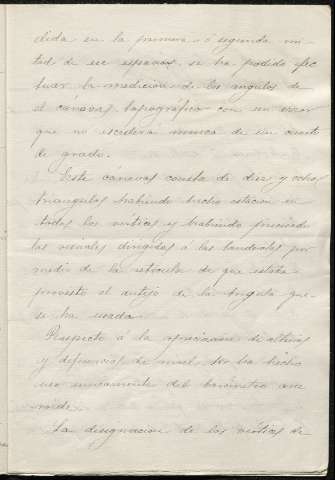 dida en la primera ó segunda mi-
tad de ese espacio, se ha podido efec
tuar la medicion de los angulos de
el cánevas topográfico con un error
que no escederá nunca de un cuarto
de grado.
Este cánevas consta de diez y ocho
triangulos habiendo hecho estacion en
todos los vértices y habiendo precisado
las visuales dirigidas á las banderolas por
medio de la retícula de que estaba
provisto el antejo de la brújula que
se ha usado.
Respecto á la apreciacion de alturas
y diferencias de nivel, se ha hecho
uso unicamente del barómetro ane
roide.
La designacion de los vértices de